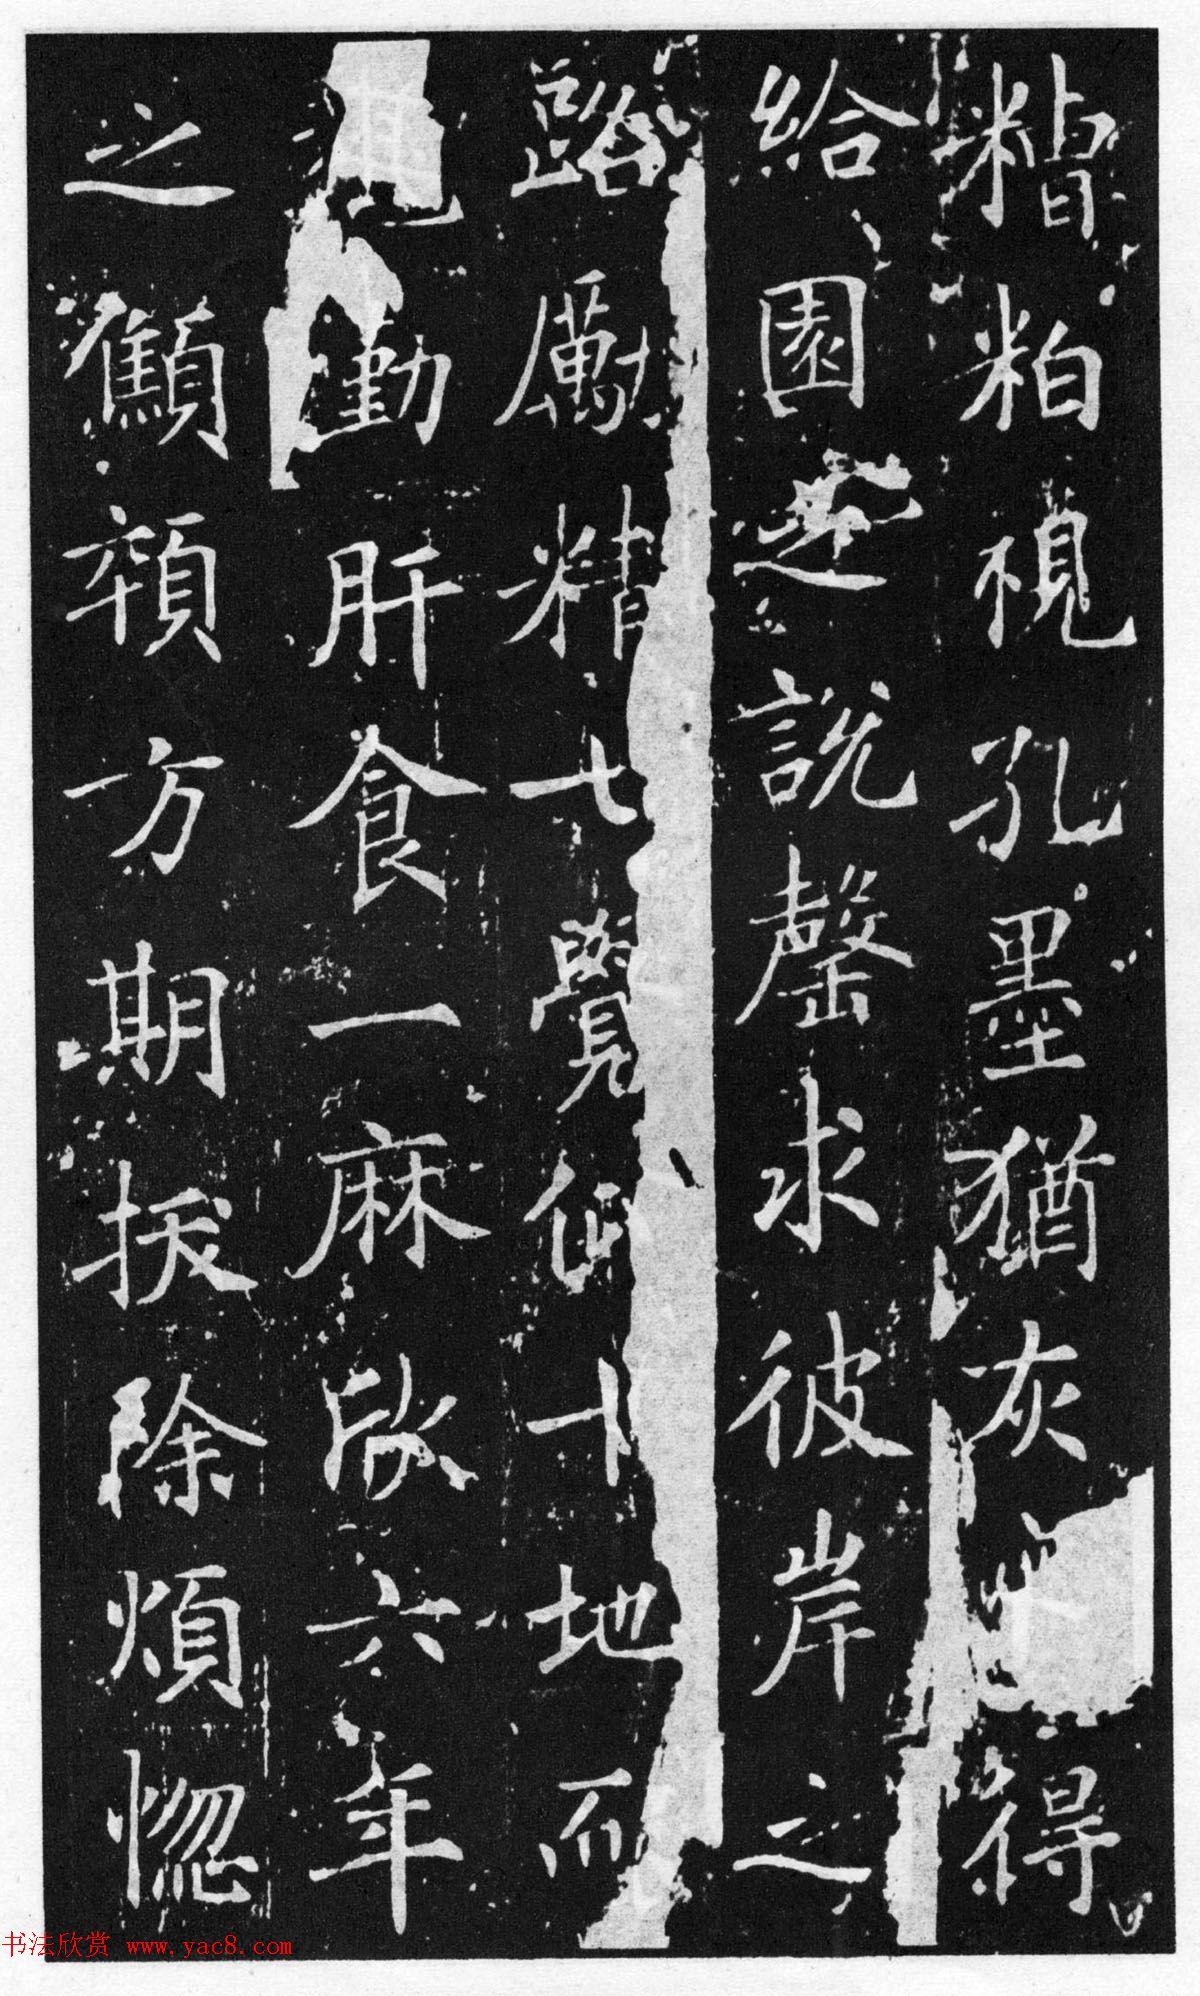 糟粕視孔墨猶灰不得
給園之說罄求彼岸之
路勵精七覺仰十地而
克勤旰食一麻欣六年
之顦顇方期拔除煩惚
书法欣赏 www.yac8.com